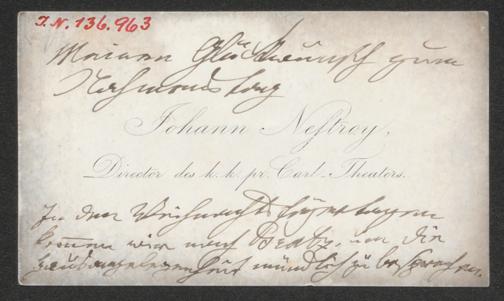 I.N. 136.963
Meinen Glückwunsch zum
Nahmenstag
Johann Nestroy,
Director des k. k. pr. Carl-Theaters.
In den Weihnachtsfeyertagen
kommen wir nach um die
mündlich zu besprechen.